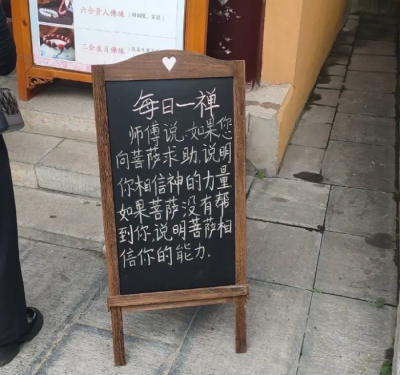 六合贵人佛珠
三合生肖佛珠
每日一禅
师傅说:如果您
向菩萨求助,说明
你相信神的力量
如果菩萨没有帮
到你,说明菩萨相
信你的能力.